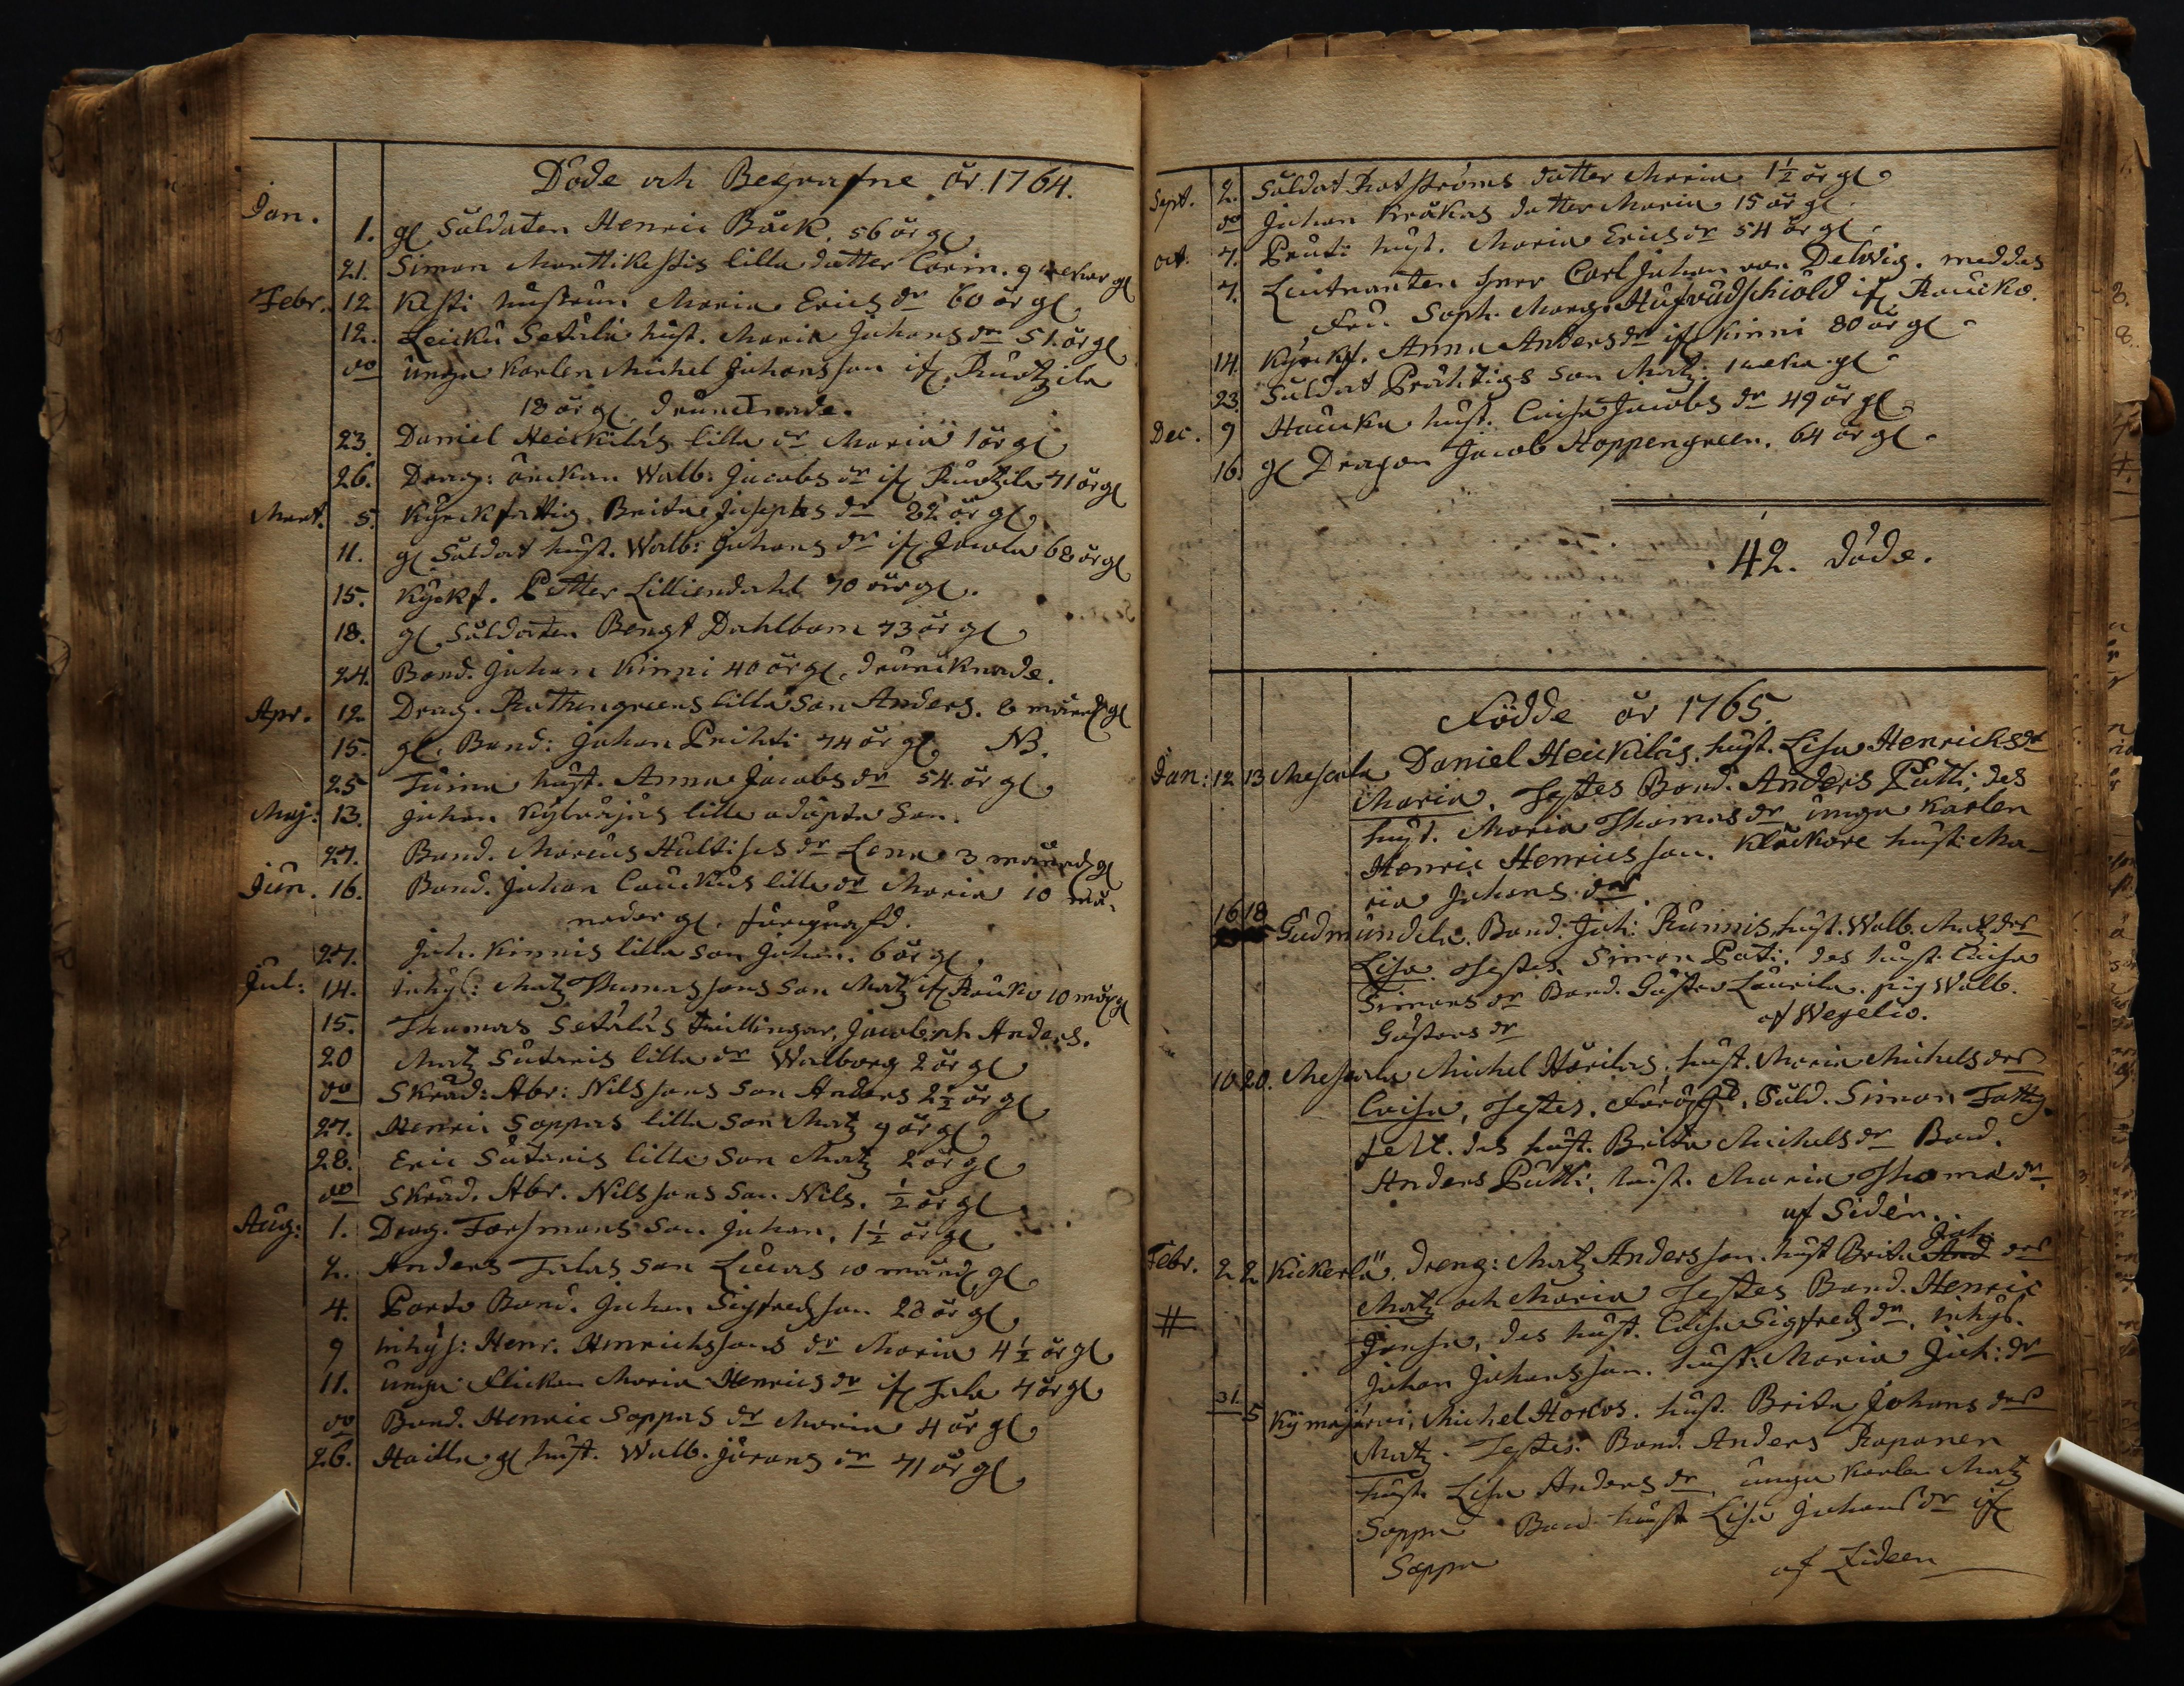 Döde och Begrafne år 1764.
Jan. 1. gl Soldaten Henric Bäck. 56 år gl
21. Simon Marttikessis lilla dotter Carin. 9 wekor gl
Febr. 12. Kesti hustrun Maria Erics dr 60 år gl
12. Leicku Setälä hust. Maria Johans dr 51 år gl
do unga Karlen Michel Johansson if
18 år gl drunknade.
23. Daniel Heickiläs lilla dr Maria 1 år gl
26. Drag: änckan Walb: Jacobs dr if 71 år gl
Mart. 5. Kyrckfattig Brita Josephs dr 82 år gl
11. gl Soldat hust. Walb: Johans dr if Jacola 68 år gl
15. Kyrkf. Petter Lilliendahl 70 år gl.
18. gl Soldaten Bengt Dahlbom 73 år gl
24. Bond. Johan Kinni 40 år gl. drunknade.
Apr. 12. Drag. Rothengreens lilla Son Anders. 8 månad gl
15. gl. Bond: Johan Prihti 74 år gl NB.
25 Tuima hust. Anna Jacobs dr 54 år gl
Maj: 13. Johan lilla odöpta Son.
27. Bond. Marcus Hultises dr Lena 3 månad gl
Jun. 16. Bond. Johan Lauckus lilla dr Maria 10 må-
nader gl.
27. Joh. Kinnis lilla son Johan. 6 år gl.
Jul: 14. Inhys: Matz Thomassons Son Matz if Rauko 10 mån gl
15. Thomas Setäläs twillingar, Jacob och Anders.
20 Matz Sutaris lilla dr Walborg 2 år gl
do Skräd: Abr: Nilssons Son Anders 2½ år gl
27. Henric Soppas lilla Son Matz 9 år gl
28. Eric Sutaris lilla Son Matz 2 år gl
do Skräd. Abr. Nilssons Son Nils. ½ år gl
Aug: 1. Drag. Forsmans Son Johan. 1½ år gl
2. Anders Talas Son Lucas 10 månad gl
4. Porto Bond. Johan Sigfredsson 28 år gl
9 Inhys: Henr. Henrichssons dr Maria 4½ år gl
11. unga Flickan Maria Henrics dr if Tala 7 år gl
do Bond. Henric Soppas dr Maria 4 år gl
26. Hailla gl hust. Walb. Jörans dr 71 år gl
Sept. 2. Soldat Rotströms dotter Maria 1½ år gl
do Johan Kråkas dotter Maria 15 år gl.
Oct. 7. Pruti hust. Maria Erics dr 54 år gl.
7. Leutnanten Herr Carl Johan von Delwig. med des
Fru Soph. Marg. Hufvudschiöld if Raucko.
14. Kyrckf. Anna Anders dr if Kinni 80 år gl
23. Soldat Prähtigs Son Matz. 1 weka gl
Dec. 9 Haucka hust. Caisa Jacobs dr 49 år gl
16. gl Dragon Jacob Hoppengreen. 64 år gl
42. döde.
Födde år 1765.
Jan: 12 13 Mescala Daniel Heickiläs, hust. Lisa Henrichs dr
Maria. Testes Bond. Anders Putti, des
hust. Maria Thomas dr unga Karlen
Henric Henricsson. Klåckare hust: Ma-
ria Johans dr
16 18 Gudmundila. Bond. Joh: Runnis, hust. Walb. Matz dr
Lisa. Testes. Simon Pati. des hust. Caisa
Simons dr Bond. Gustav Laurila. pig Walb.
Gustavs dr af Wegelio.
10 20. Mescala Michel Hörilas, hust. Maria Michels dr
Caisa, Testes. Sold. Simon Fattig
felt. des hust. Brita Michels dr Bond.
Anders Putti, hust. Maria Thomæ dr.
af Sidén.
Febr. 2 2 Kickerlä. dreng: Matz Andersson. hust Brita And Joh. dr
Matz och Maria Testes Bond. Henric
# Jausa, des hust. Caisa Sigfreds dr. Inhys.
Johan Johansson. hust: Maria Joh: dr
31. 5 Kymäjärvi, Michel Horlos. hust. Brita Johans dr
Matz. Testes. Bond. Anders Raponen
hust. Lisa Anders dr. unga Karlen Matz
Soppa Bond. hust Lisa Johans dr if
Soppa af Lideen